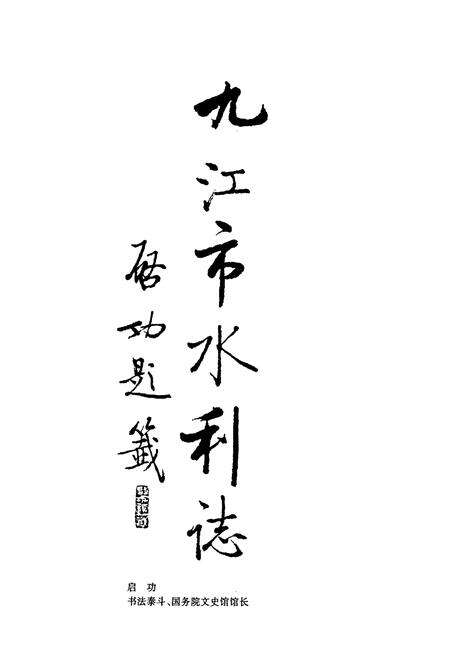 九江市水利誌
啓功题籤
启 功
书法泰斗、国务院文史馆馆长